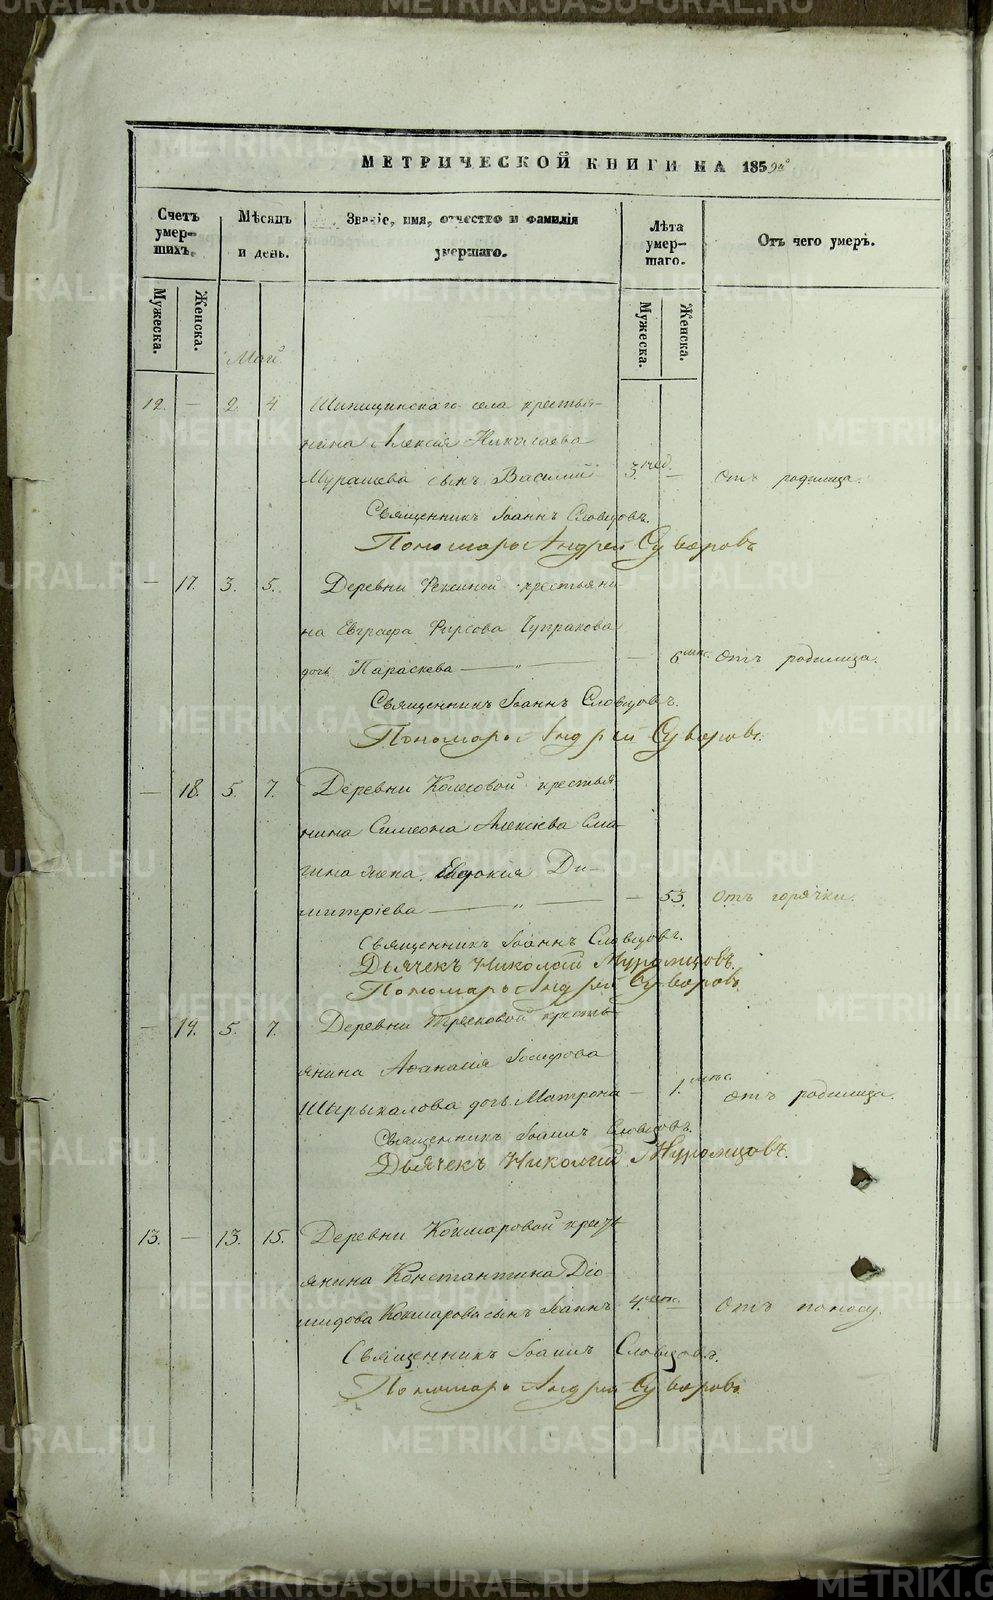 МЕТРИЧЕСКОЙ КНИГИ НА 1859й
Счетъ умер-шихъ.
Мѣсяцъ и день.
Званіе, имя, отчество и фамилія умершаго.
Лѣта умер-шаго.
Отъ чего умеръ.
Мужеска. Женска.
Мужеска. Женска.
Май
12. — 2. 4 Шипицинскаго села крестья-
нина Алексія Николаева
Мурашева сынъ Василій 3. нед. — Отъ родимца.
Священникъ Іоаннъ Словцовъ.
Пономарь Андрей Суворовъ
— 17. 3. 5. Деревни крестьяни-
на Евграфа Фирсова Чупракова
дочь Параскева — „ — — 6 мѣс. Отъ родимца.
Священникъ Іоаннъ Словцовъ.
Пономарь Андрей Суворовъ.
— 18. 5. 7. Деревни Колесовой крестья-
нина Симеона Алексѣева Сма-
гина жена Евдокия Ди-
митріева — „ — — 53. Отъ горячки.
Священникъ Іоаннъ Словцовъ.
Дьячекъ Николай Муромцовъ.
Пономарь Андрей Суворовъ
— 19. 5. 7. Деревни кресть-
янина Аѳанасія Іосифова
Шырыкалова дочь Матрона — 1. мѣс. отъ родимца.
Священникъ Іоаннъ Словцовъ.
Дьячекъ Николай Муромцовъ.
13. — 13. 15. Деревни Кокшаровой крест-
янина Константина Діо-
мидова Кокшарова сынъ Іоаннъ 4. — Отъ поносу.
Священникъ Іоаннъ Словцовъ.
Пономарь Андрей Суворовъ
METRIKI.GASO-URAL.RU